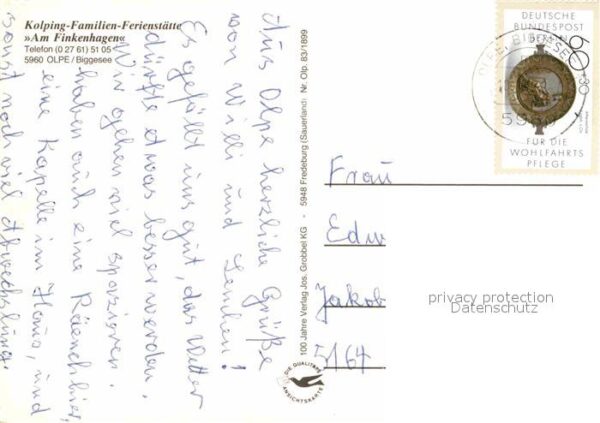 Kolping-Familien-Ferienstätte
»Am Finkenhagen«
Telefon (0 27 61) 51 05
5960 OLPE / Biggesee
Aus Olpe herzliche Grüße
von Willi und Lenchen!
Es gefällt uns gut, das Wetter
dürfte etwas besser werden.
Wir gehen viel spazieren.
haben auch eine
eine Kapelle im Haus, und
sonst noch viel Abwechslung.
100 Jahre Verlag Jos. Grobbel KG - 5948 Fredeburg (Sauerland) Nr. Olp. 83/1899
DEUTSCHE
BUNDESPOST
BERLIN
60+30
FÜR DIE
WOHLFAHRTS
PFLEGE
Frau
Edw
Jakob
5164
privacy protection
Datenschutz
DIE QUALITÄTS
ANSICHTSKARTE